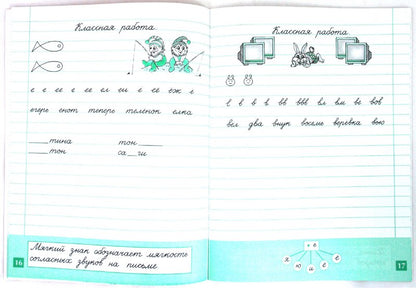 Классная работа.
е е е ее ее ел ш е её еж е
егерь енот теперь теленок елка
____тина тон____
____тон са__ги
Мягкий знак обозначает мягкость
согласных звуков на письме
16
Классная работа.
в в в в вв ввв вл вм ве вов
вел два внук восемь веревка вою
+ в
я ю и е ё
17